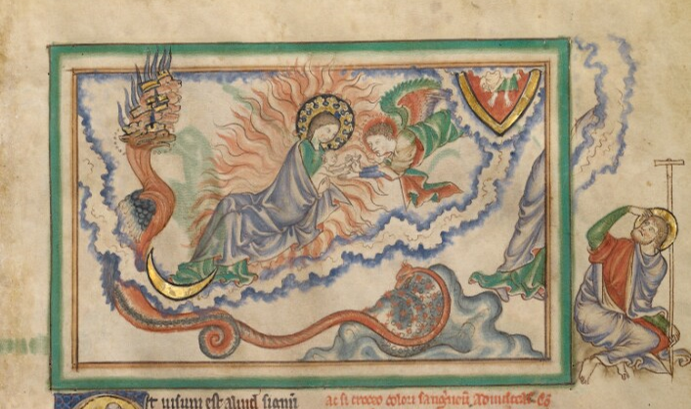 Et uisum est aliud signū
ac si croceo colori sanguineū admisceas